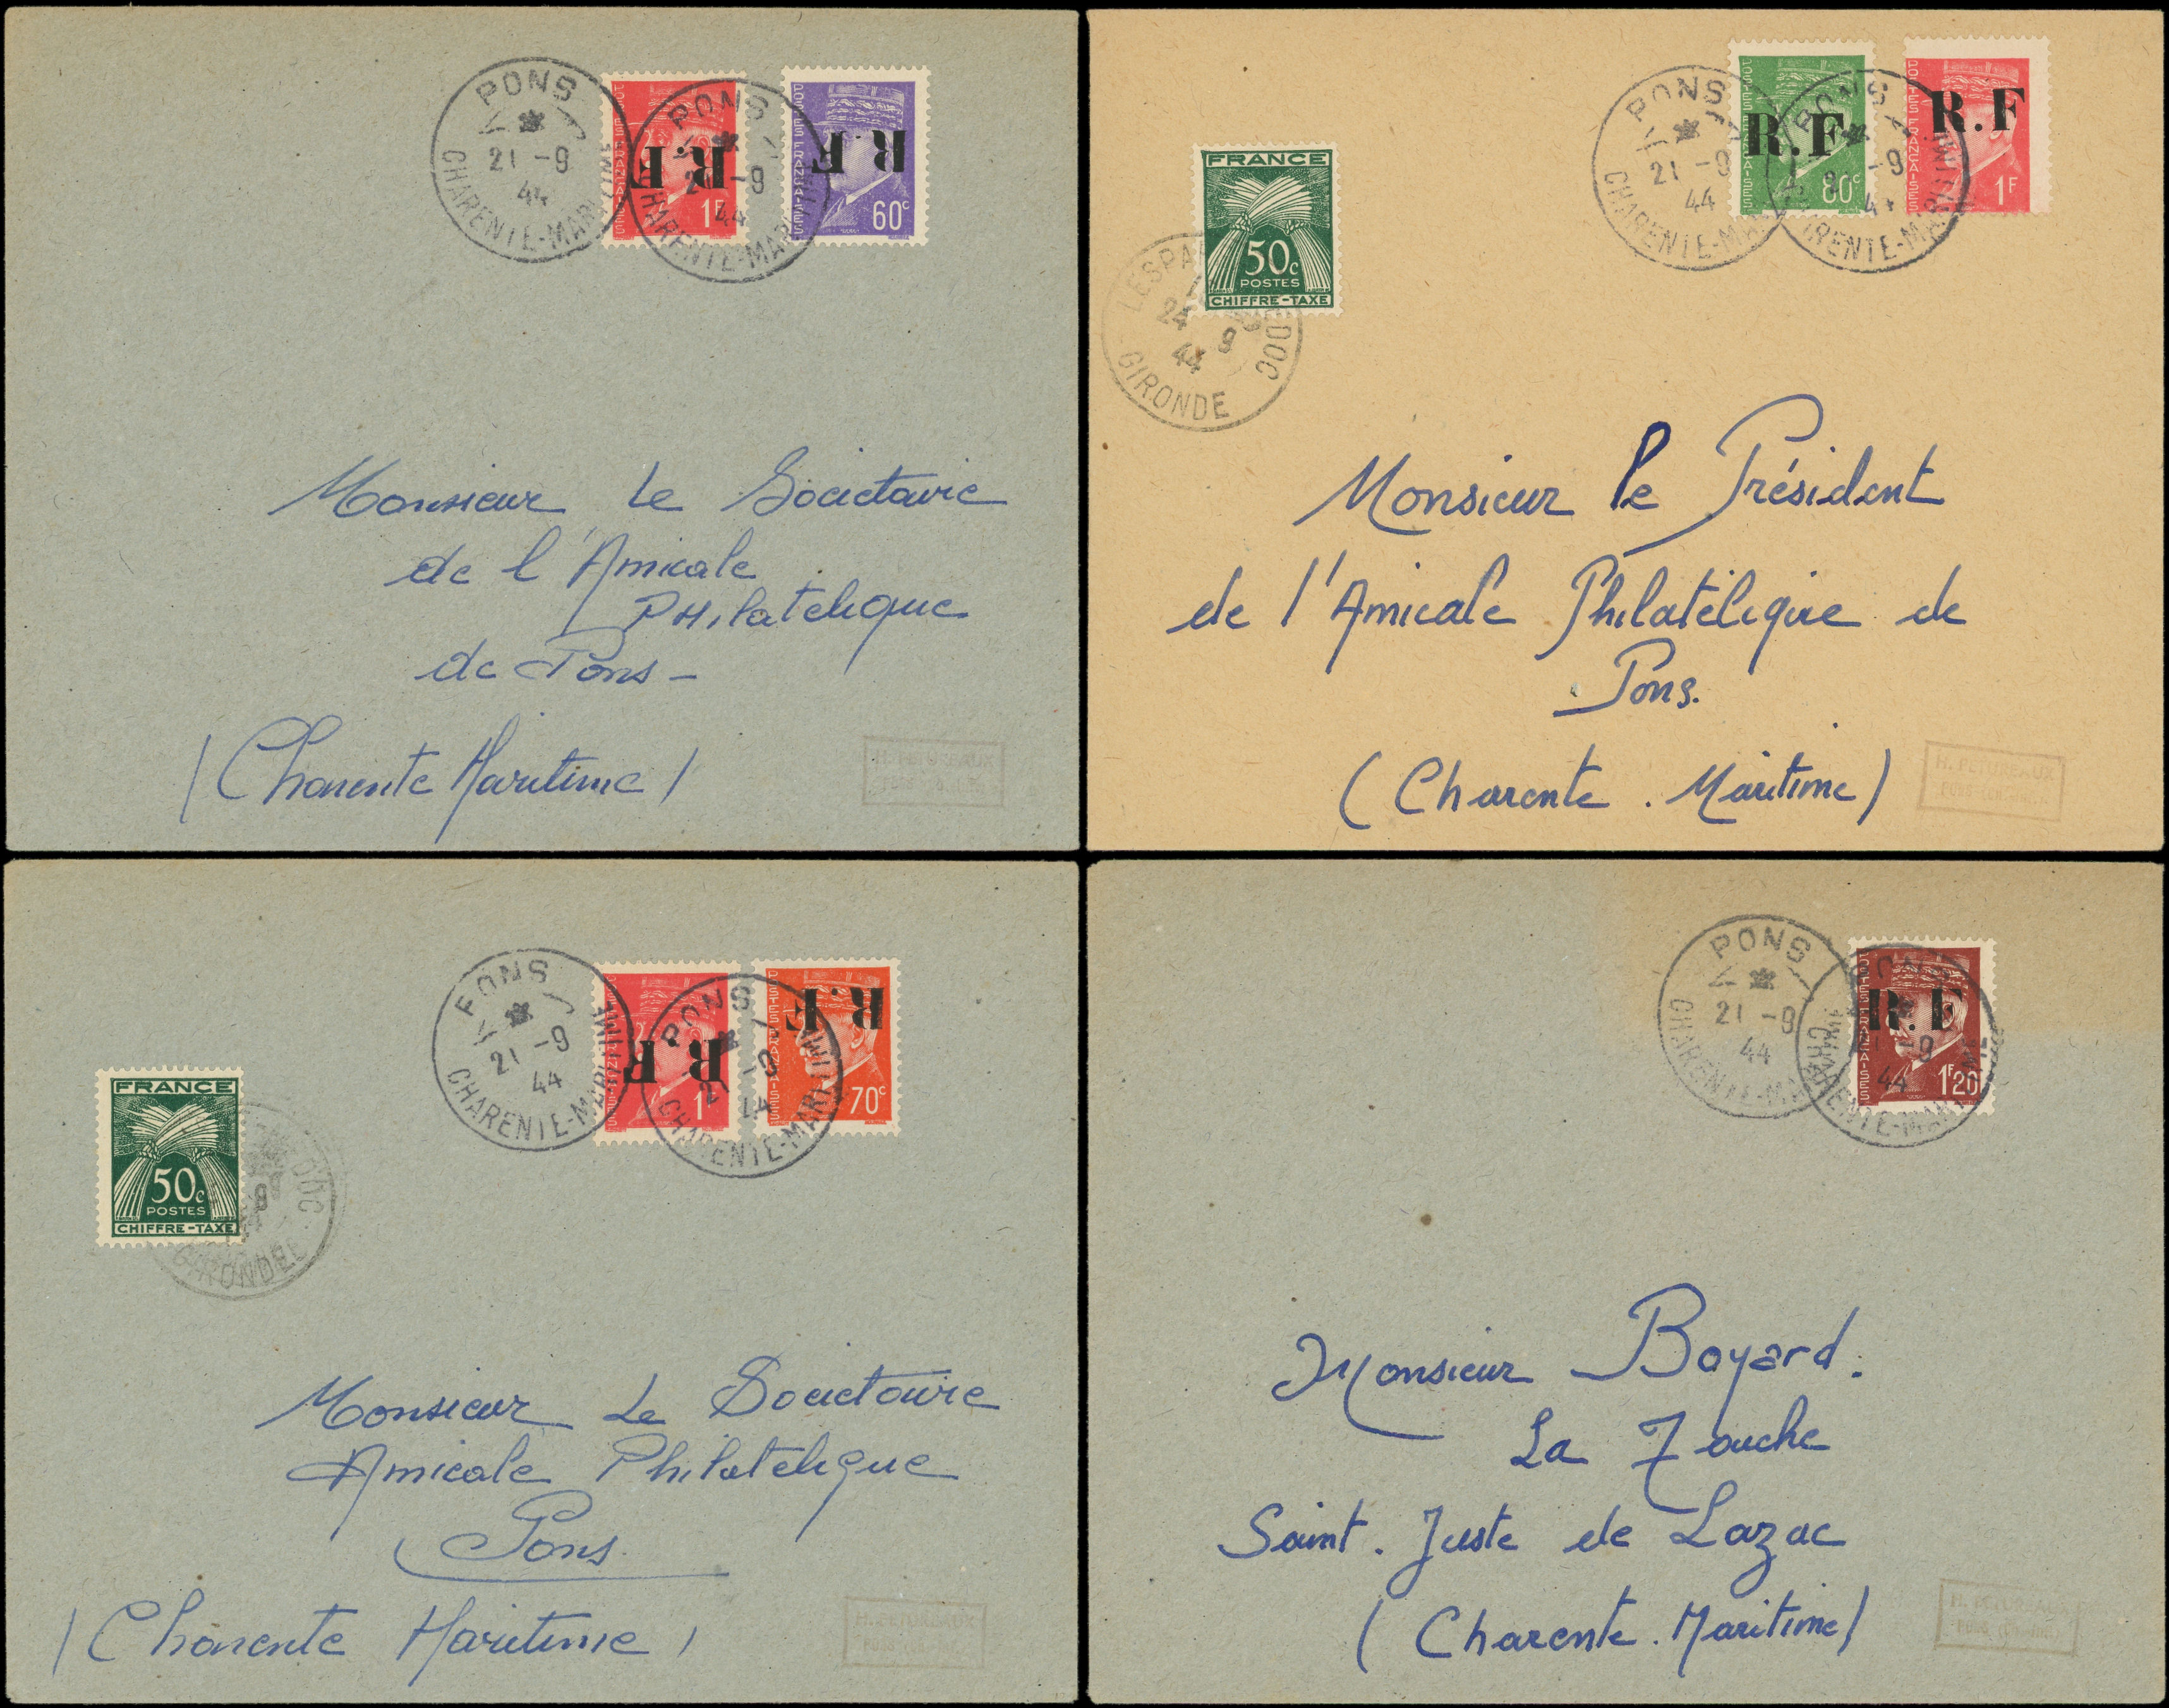 PONS
21 -9
44
CHARENTE-MARITIME
PONS
21 -9
44
CHARENTE-MARITIME
POSTES FRANÇAISES
R.F
1F
POSTES FRANÇAISES
R.F
60c
Monsieur Le Societaire
de l'Amicale
PHilatelique
de Pons -
/ Charente Maritime /
H. PETUREAUX
PONS
21 -9
44
CHARENTE-MARITIME
PONS
-9
CHARENTE-MARITIME
POSTES FRANÇAISES
R.F
80c
POSTES FRANÇAISES
R.F
1F
FRANCE
50c
POSTES
CHIFFRE-TAXE
24 9
44
GIRONDE
Monsieur le Président
de l'Amicale Philatélique de
Pons.
(Charente . Maritime)
H. PETUREAUX
PONS
21 -9
44
CHARENTE-MARITIME
PONS
21 -9
44
CHARENTE-MARITIME
POSTES FRANÇAISES
R.F
1F
POSTES FRANÇAISES
R.F
70c
FRANCE
50c
POSTES
CHIFFRE-TAXE
GIRONDE
Monsieur Le Societaire
Amicale Philatelique
Pons.
/ Charente Maritime /
H. PETUREAUX
PONS
21 -9
44
CHARENTE-MARITIME
PONS
21 -9
44
CHARENTE-MARITIME
POSTES FRANÇAISES
R.F
1F20
Monsieur Boyard.
La Touche
Saint. Juste de Lazac
(Charente. Maritime)
H. PETUREAUX